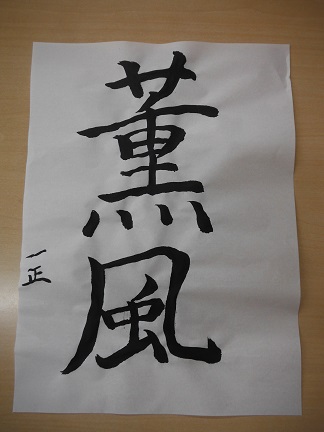 薫風
一正